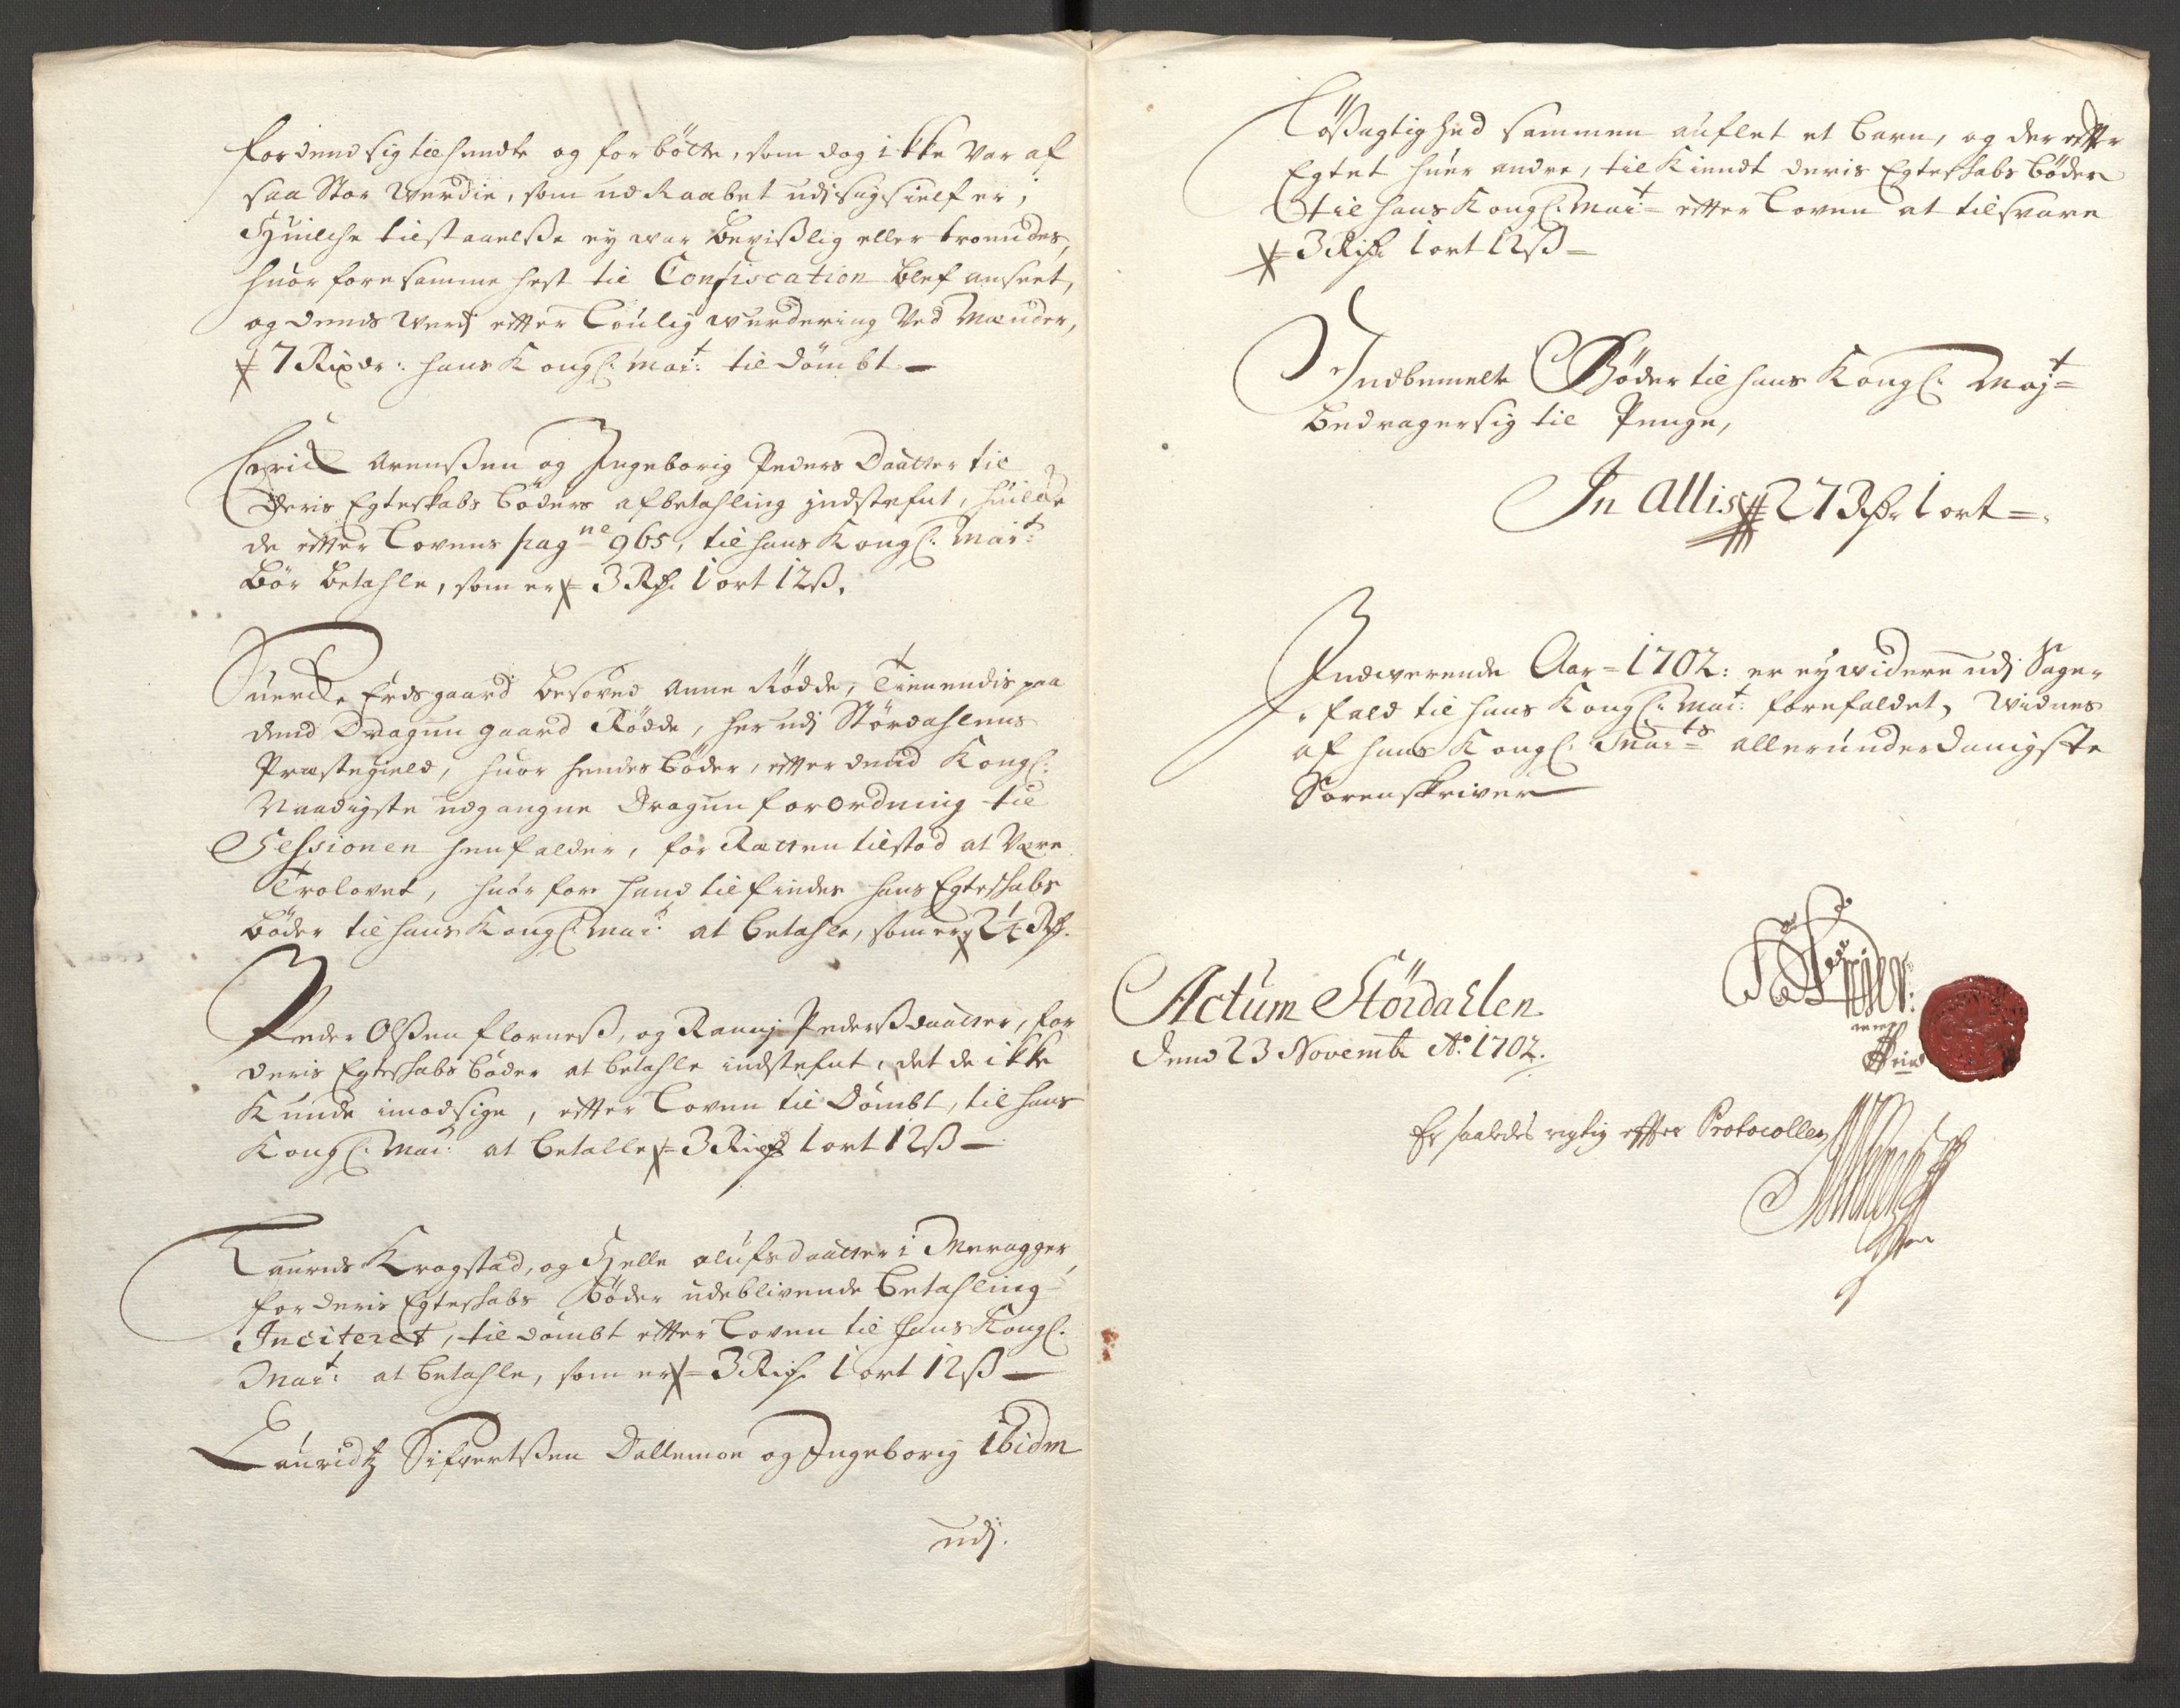 fordend sig tilhendte og forbötte, som dog ikke var af
saa Stor werdie, som ud Raabet udj sig sielf er,
Huilche tilstaaelsße ey war bevißlig eller troendes,
huorfore samme hest til Confiscation blef anseet,
og dends werdj etter Loulig wurdering ved Mænder,
7 Rixdr: hans Kongl: Mai:t til dömbt
Erich Arenßen og Ingeborig Peders Daatter til
Deris Egteskabs böders afbetahling indstefnt, huilche
de etter Lovens pagne 965, til hans Kongl: Mai:t
bör betahle, som er 3 Rß. 1 ort 12ß.
Suercke Erdsgaard besoved Anne Rödde, Tienendis paa
dend Dragun gaard Rödde, her udj Stördahlens
Præstegield, huor hendes böder, etter dend Kongl:
Naadigste udgangne Dragun forordning til
Sessionen henfalder, for Rætten tilstod at være
Trolovet, huorfor hand tilfindes hans Egteskabs
böder til hans Kongl: Mai:t at betahle, som er 2¼ Rß.
Peder Olßen Flornesß, og Rannj Pederßdaatter, for
deris Egteskabs böder at betahle indstefnt, det de ikke
Kunde imodsige, etter Loven til Dömbt, til hans
Kongl: Mai:t at betalle 3 Rixd 1 ort 12ß
Laurids Krogstad, og Helle Olufsdaatter i Meragger
for deris Egteskabs böder udeblivende betahling
Inciteret, til dömbt etter Loven til hans Kongl.
Mai:t at betahle, som er 3 Rix 1 ort 12ß
Lauridtz Sifvertßen Dallemoe og Ingeborig ibidm
udj.
Lößagtighed sammen auflet et barn, og der etter
Egtet huer andre, til Kiendt deris Egteskabs böder
til hans Kongl: Mai:t etter Loven at tilsvare
3 Rix 1 ort 12ß
Indbemelte Böder til hans Kongl: Maj:t
bedrager sig til Penge,
In Allis 27 Rß. 1 ort
Indwerende Aar 1702: er ey widere udj Sage-
fald til hans Kongl: Mai:t forefaldet, widnes
af hans Kongl: Mai:ts allerunderdanigste
Sorenskriver
Actum Stördahlen
dend 23 Novemb A:o 1702.
Er saaledes rigtig effter Protocollen